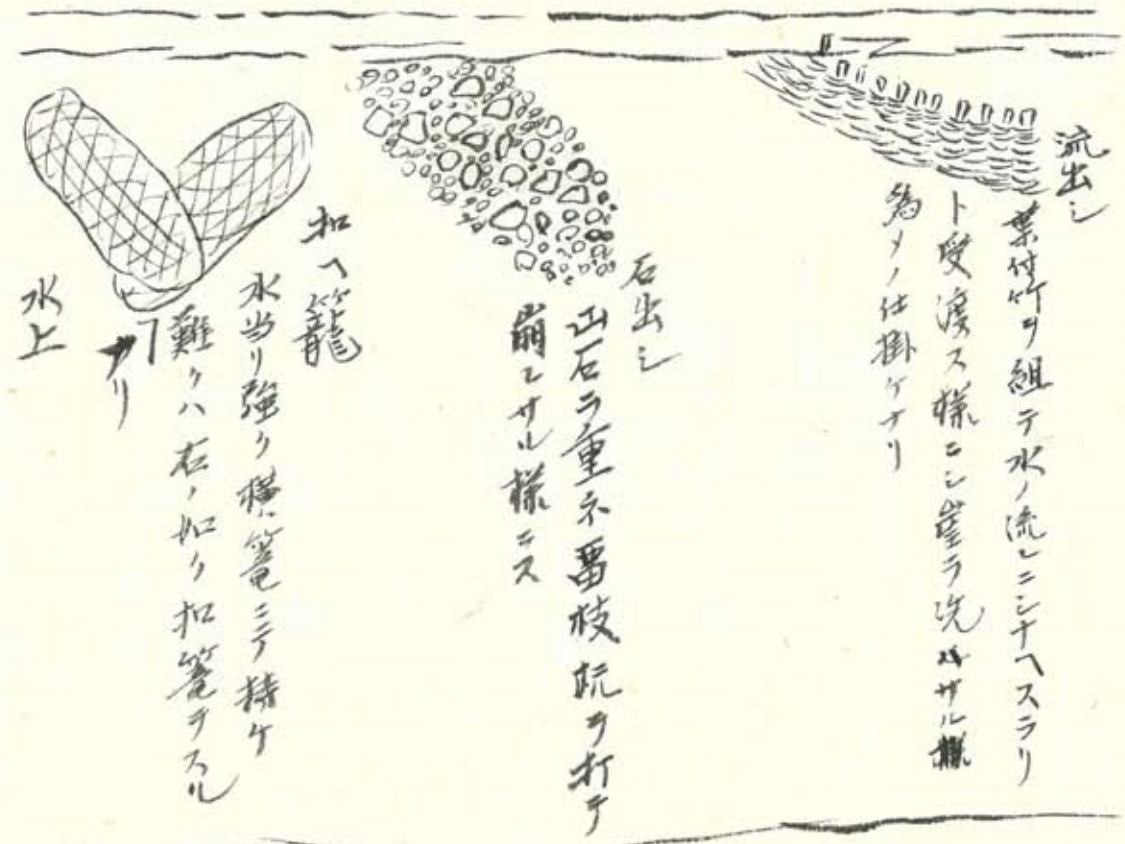 流出シ
葉付竹ヲ組テ水ノ流レニシナヘスラリ
ト受渡ス様ニシ崖ヲ洗ハザル様
為メノ仕掛ケナリ
石出シ
山石ヲ重ネ留枝杭ヲ打テ
崩レサル様ニス
扣ヘ籠
水当リ強ク横篭ニテ持ケ
難クハ右ノ如ク扣篭ヲスル
ヿナリ
水上